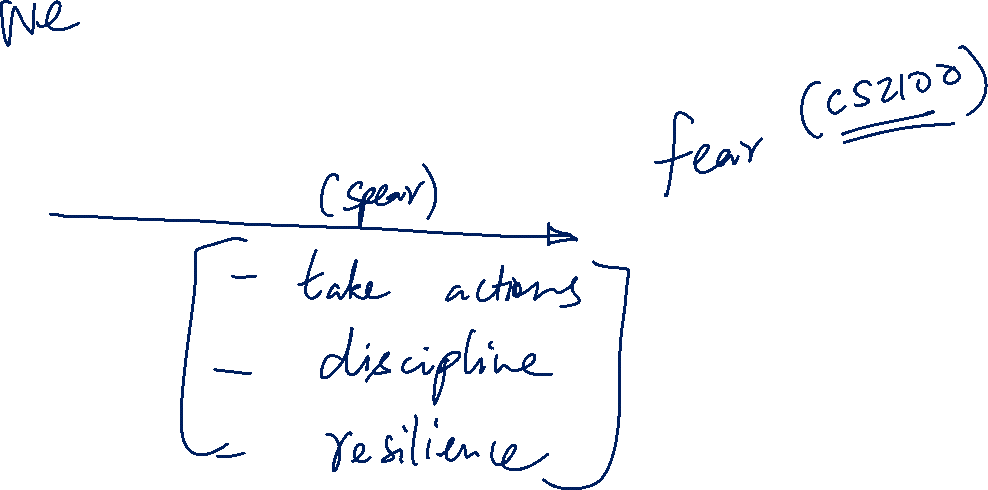 we
fear (CS2100)
(spear)
- take actions
- discipline
- resilience